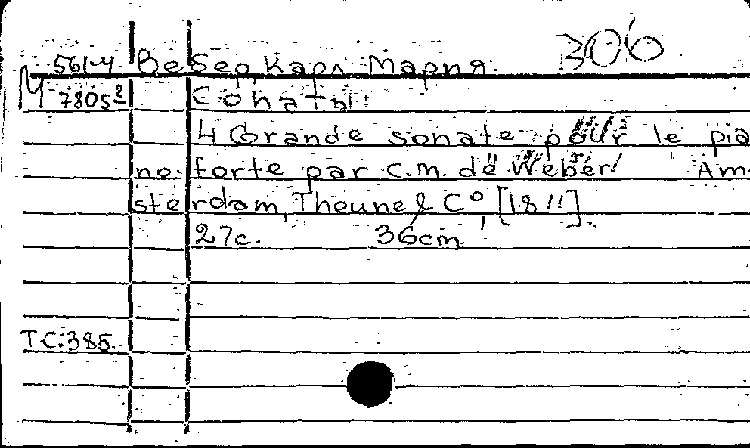 306
561-4 Вебер, Карл Мария.
M 7805² Сонаты.
4 Grande sonate pour le pia
no forte par C.M. de Weber. Am
sterdam, Theune & Cº, [18 ].
27c. 36cm
T.C.385.